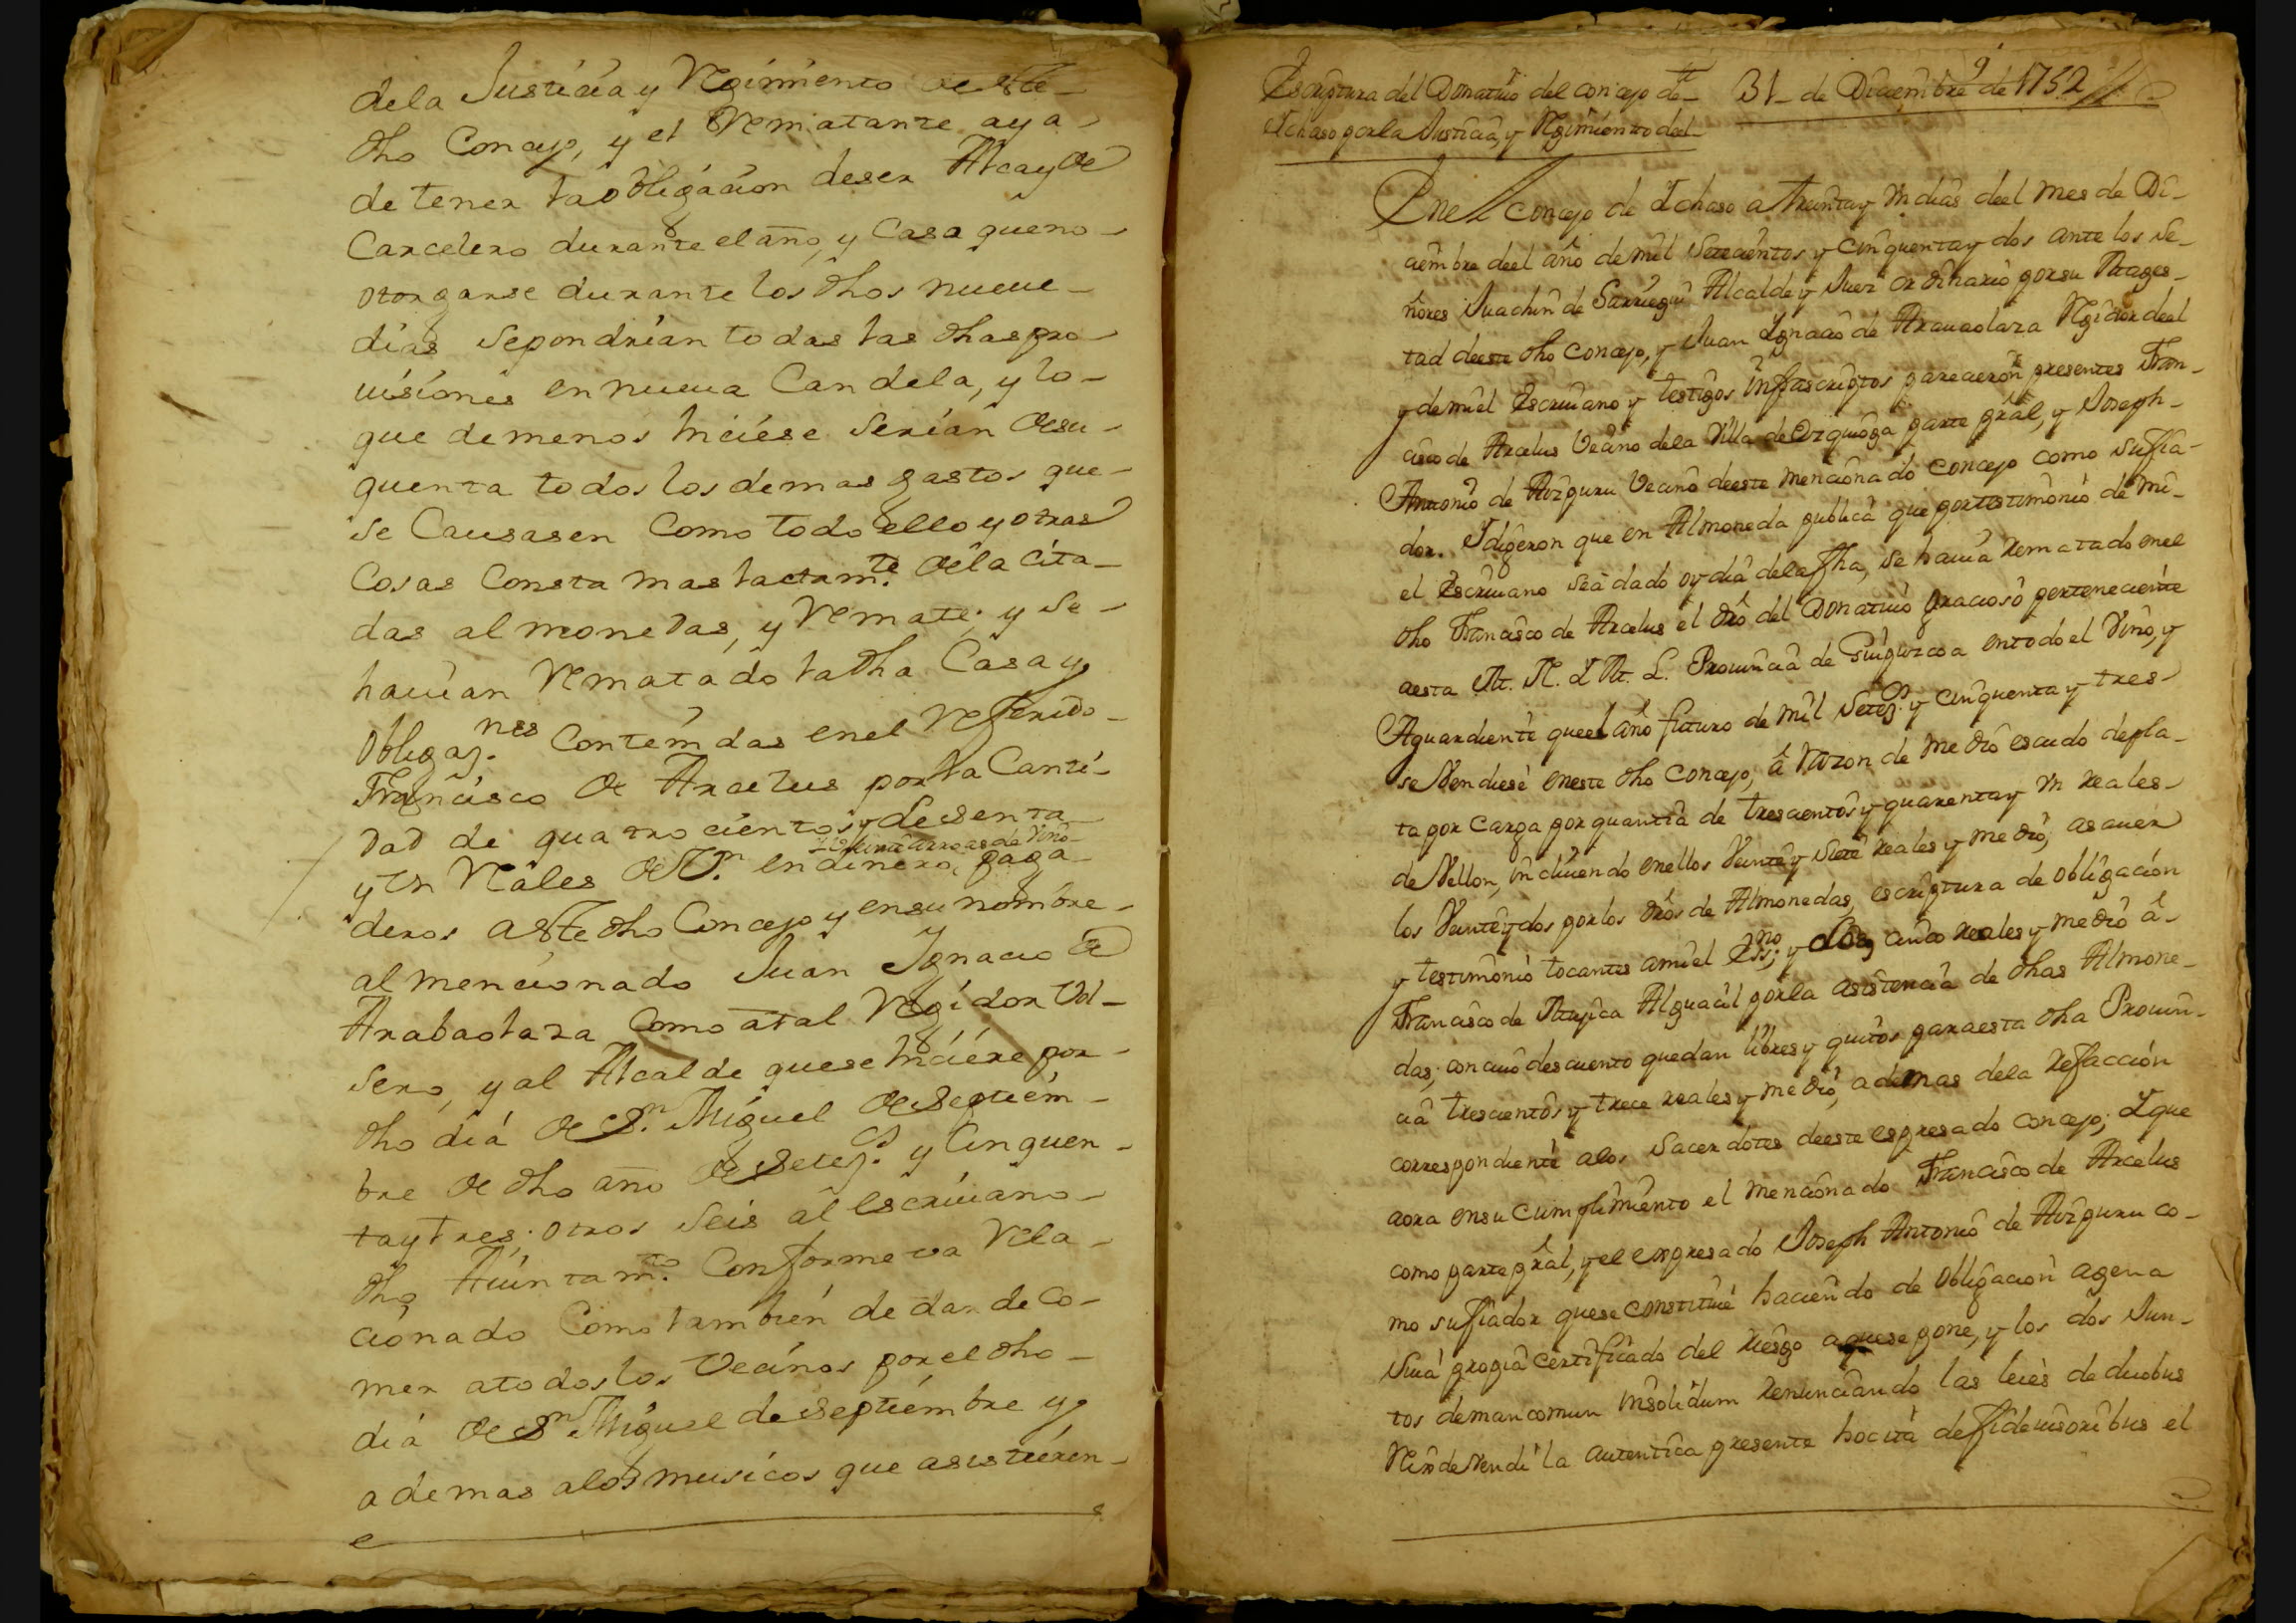 dela Justicia y Regimiento de este
dho Concejo, y el Rematante aya
de tener la obligacion deser Alcayde
Carcelero durante el año, y Casa queno
otorgarse durante los dhos nueue
dias Sepondrian todas las dhas pro
uisiones en nueua Candela, y lo
que demenos hiciese Serian desu
quenta todos los demas gastos que
se Causasen Como todo ello y otras
Cosas Consta mas lactam.te dela cita
das almonedas, y Remate; y Se
hauian Rematado la dha Casa y
Obligaz.nes Contenidas enel Referido
Francisco de Arcelus por la Canti
dad de quatrocientos y Sesenta
arroas de Vino
y un Rales de V.n en dinero, paga
deros a este dho Concejo y ensu nombre
al mencionado Juan Ignacio de
Arabaolaza Como atal Regidor Vol
sero, y al Alcalde quese hiciere por
dho dia de S.n Miguel de Septiem
bre de dho año de Setez.s y Cinquen
taytres; otros Seis al escriuano
dho Aiuntam.to Conforme va Rela
cionado Como tambien de dar de Co
mer atodos los Vecinos por el dho
dia de S.n Miguel de Septiembre y
ademas alos musicos que asistieren
Escriptura del Donatiuo del concejo de
Ichaso por la Justicia, y Regimiento del
31 de Diciembre de 1752
9
Enel Concejo de Ichaso a treinta y un dias deel mes de Di
ciembre deel año de mil Setecientos y cinquenta y dos ante los Se
ñores Juachin de Sarriegui Alcalde y Juez ordinario por su Mages
tad deeste dho concejo, y Juan Ignacio de Arauaolaza Regidor deel
y demi el Escriuano y testigos infrascriptos parecieron presentes Fran
cisco de Arcelus Vecino dela Villa de Ezquioga parte pral, y Joseph
Antonio de Aizpuru Vecino deeste mencionado concejo como sufia
dor. I digeron que en Almoneda publica que por testimonio de mi
el Escriuano sea dado oy dia dela fha, se hauia rematado enel
dho Francisco de Arcelus el dro del Donatiuo gracioso perteneciente
aesta M. N. I M. L. Prouincia de Guipuzcoa entodo el Vino, y
Aguardiente queel año futuro de mil Setez.s y cinquenta y tres
se Vendiese eneste dho concejo, â razon de medio escudo depla
ta por carga por quantia de trescientos y quarenta y un reales
de Vellon, incluiendo enellos Veinte y siete reales y medio, asauer
los Veinte y dos por los dros de Almonedas, escriptura de obligacion
y testimonio tocantes ami el Ess.no; y los cinco reales y medio â
Francisco de Mugica Alguacil por la asistencia de dhas Almone
das; con cuio descuento quedan libres y quitos para esta dha Prouin
cia trescientos y trece reales y medio, ademas dela refaccion
correspondiente alos Sacerdotes deeste espresado concejo; I que
aora ensu cumplimiento el mencionado Francisco de Arcelus
como parte pral, y el espresado Joseph Antonio de Aizpuru co
mo sufiador quese constituie haciendo de obligacion agena
suia propia certificado del riesgo aquese pone, y los dos Jun
tos demancomun insolidum renunciando las leies de duobus
Reis devendi la autentica presente hocita defideiusoribus el